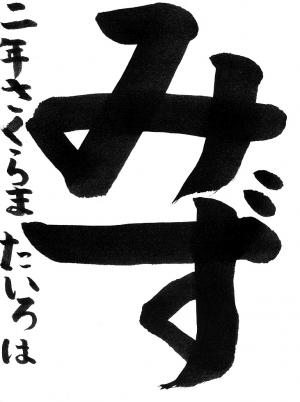 みず
二年さくらまたいろは